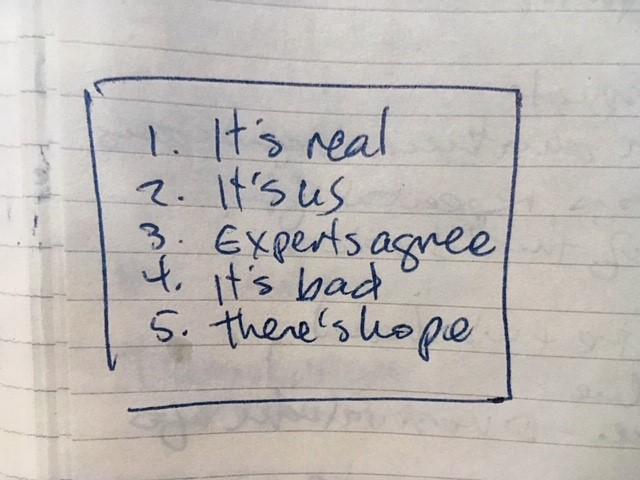 1. It's real
2. It's us
3. Experts agree
4. It's bad
5. there's hope